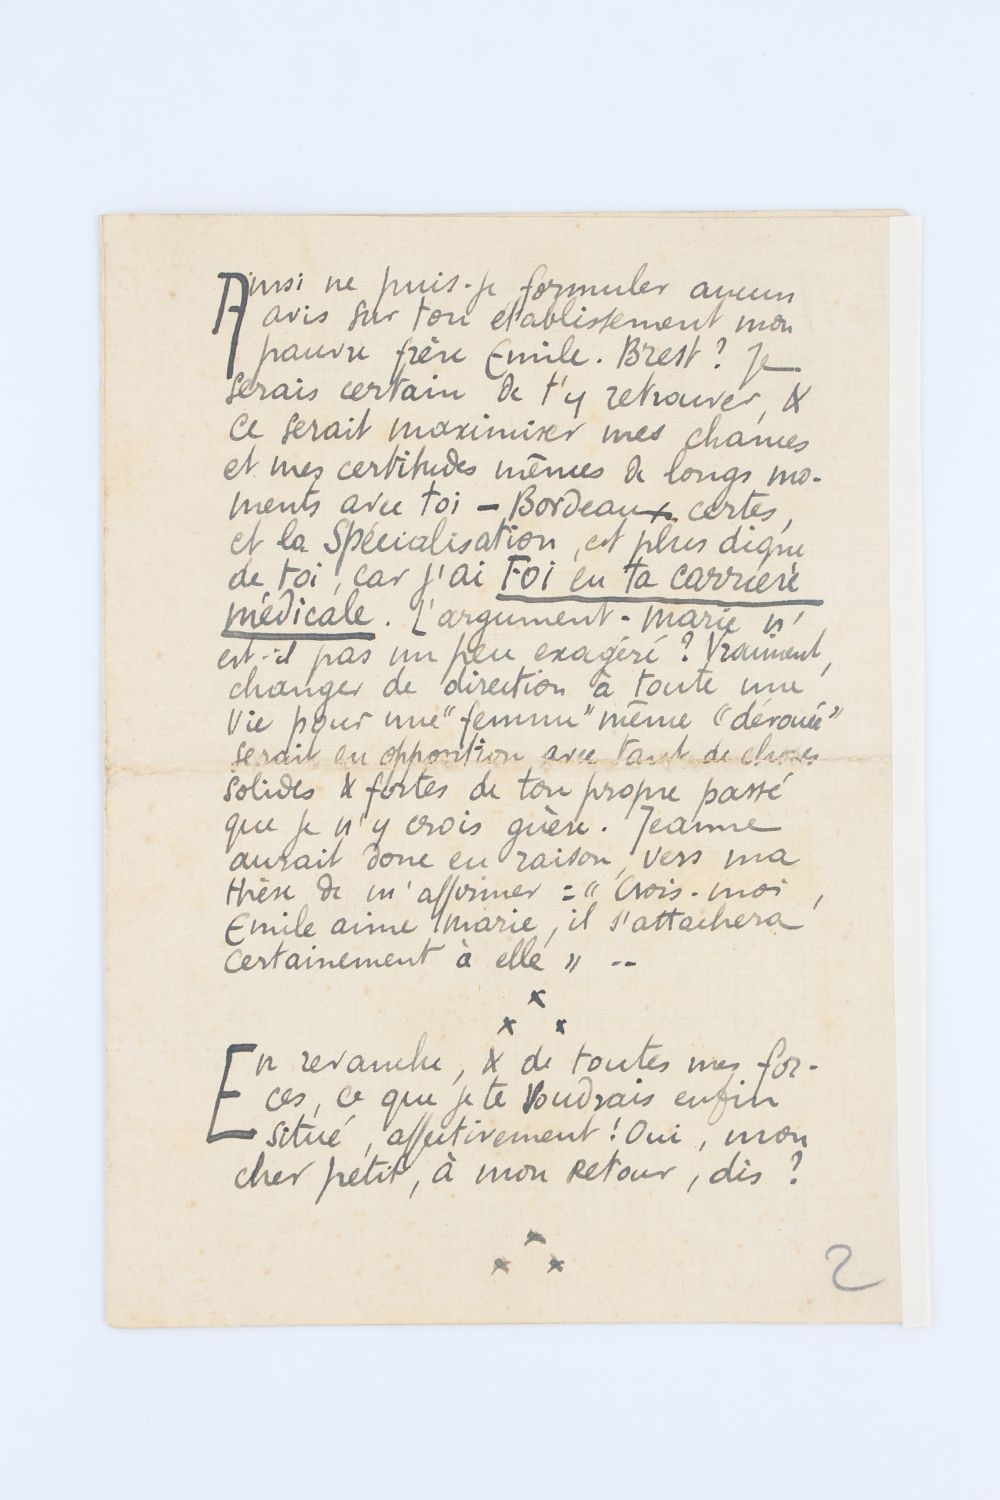 Ainsi ne puis-je formuler aucun
avis sur ton établissement mon
pauvre frère Emile. Brest ? Je
serais certain de t'y retrouver, &
ce serait maximiser mes chances
et mes certitudes mêmes de longs mo-
ments avec toi - Bordeaux certes,
et la Spécialisation, est plus digne
de toi, car j'ai Foi en ta carrière
médicale. L'argument-Marie n'
est-il pas un peu exagéré ? Vraiment,
changer de direction à toute une
vie pour une "femme" même "dévouée"
serait en opposition avec tant de choses
solides & fortes de ton propre passé
que je n'y crois guère. Jeanne
aurait donc eu raison, vers ma
thèse de m'affirmer = " Crois-moi,
Emile aime Marie, il s'attachera
certainement à elle " --
x
x x
En revanche, & de toutes mes for-
ces, ce que je te voudrais enfin
situé, affectivement ! Oui, mon
cher petit, à mon retour, dis ?
x
x x
2